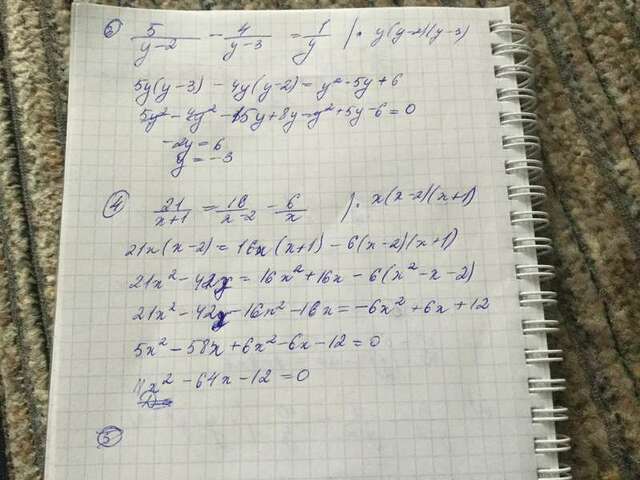 ③ 5/(y-2) - 4/(y-3) = 1/y | · y(y-2)(y-3)
5y(y-3) - 4y(y-2) = y² - 5y + 6
5y² - 4y² - 15y + 8y - y² + 5y - 6 = 0
-2y = 6
y = -3
④ 21/(x+1) = 16/(x-2) - 6/x | · x(x-2)(x+1)
21x(x-2) = 16x(x+1) - 6(x-2)(x+1)
21x² - 42x = 16x² + 16x - 6(x² - x - 2)
21x² - 42x - 16x² - 16x = -6x² + 6x + 12
5x² - 58x + 6x² - 6x - 12 = 0
11x² - 64x - 12 = 0
⑤